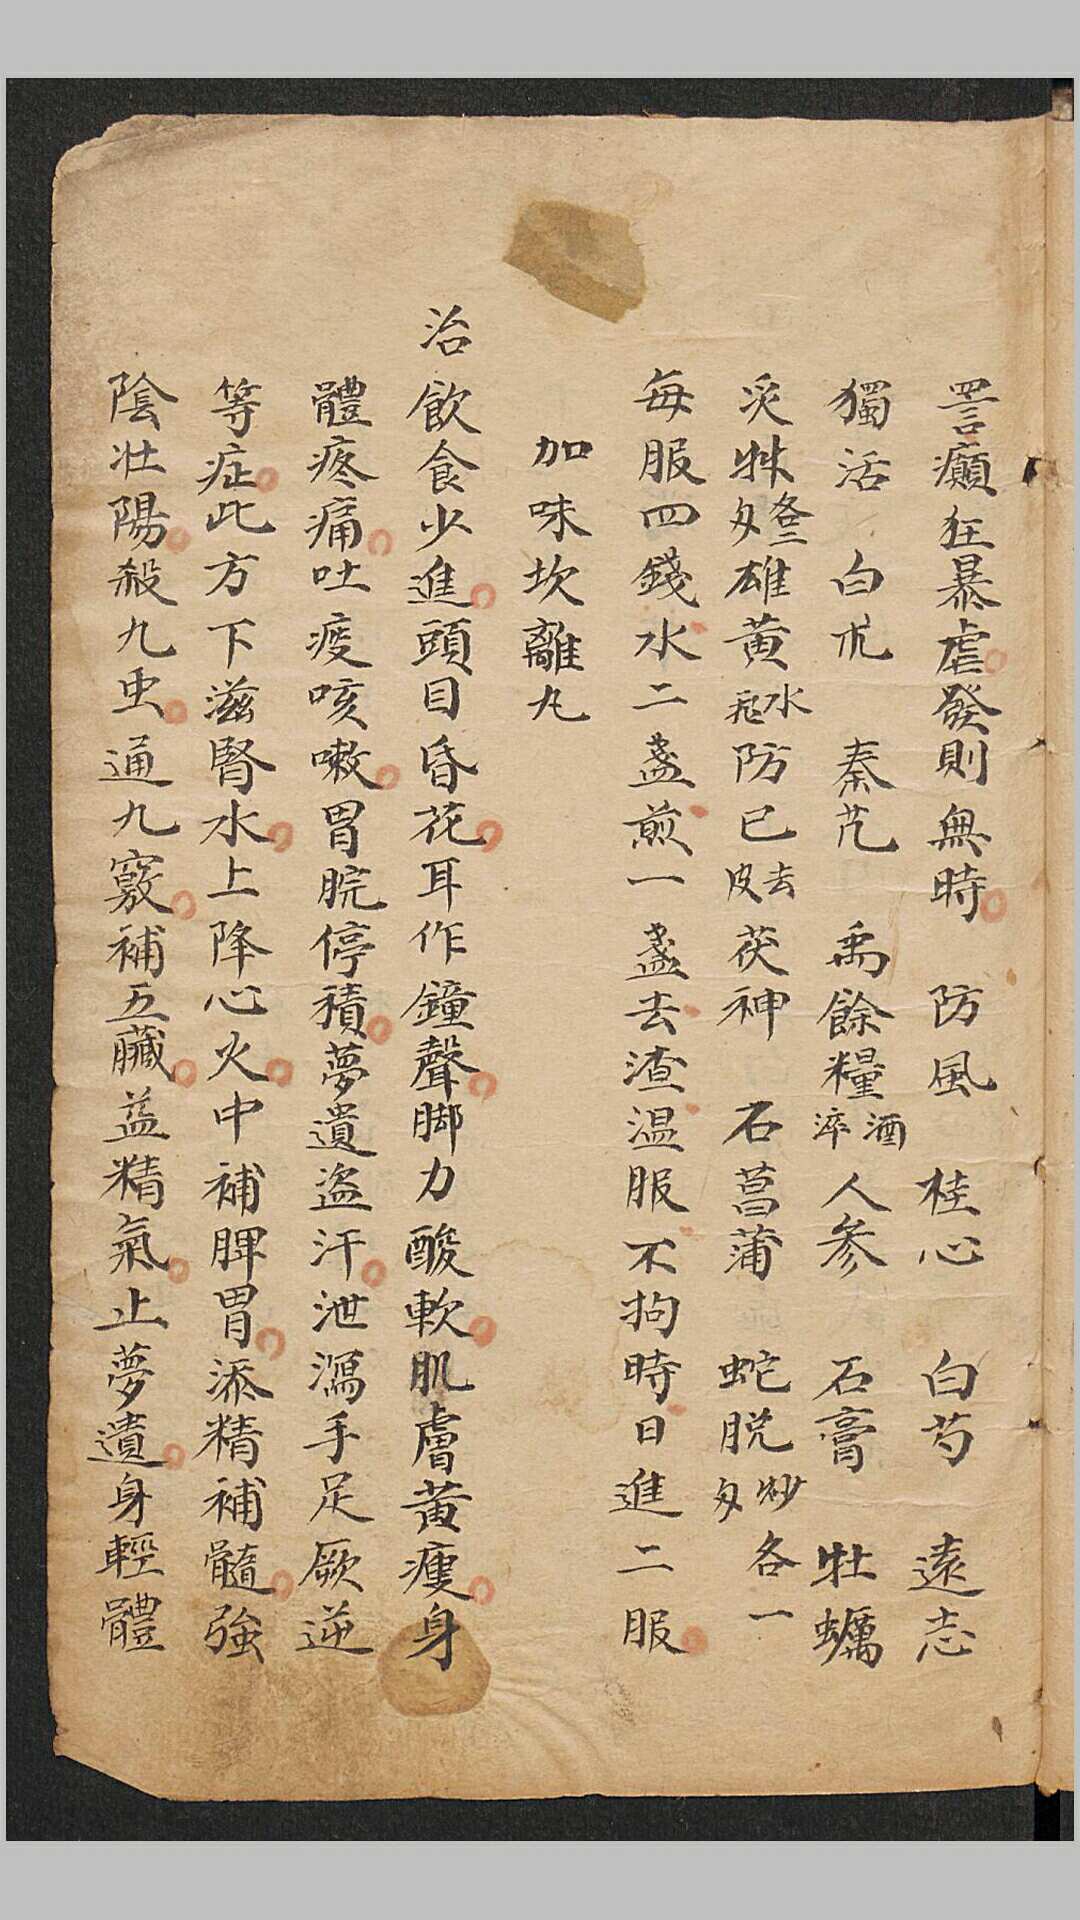 詈癲狂暴虐發則無時 防風 桂心 白芍 遠志
獨活 白朮 秦艽 禹餘糧酒淬 人參 石膏 牡蠣
各二匁 雄黃水飛 防已去皮 茯神 石菖蒲 蛇脫炒 各一匁
每服四錢水二盞煎一盞去渣温服不拘時日進二服
加味坎離丸
治飲食少進頭目昏花耳作鐘聲脚力酸軟肌膚黃瘦身
體疼痛吐痰咳嗽胃脘停積夢遺盗汗泄瀉手足厥逆
等症此方下滋腎水上降心火中補脾胃添精補髓強
陰壯陽殺九虫通九竅補五臟益精氣止夢遺身輕體